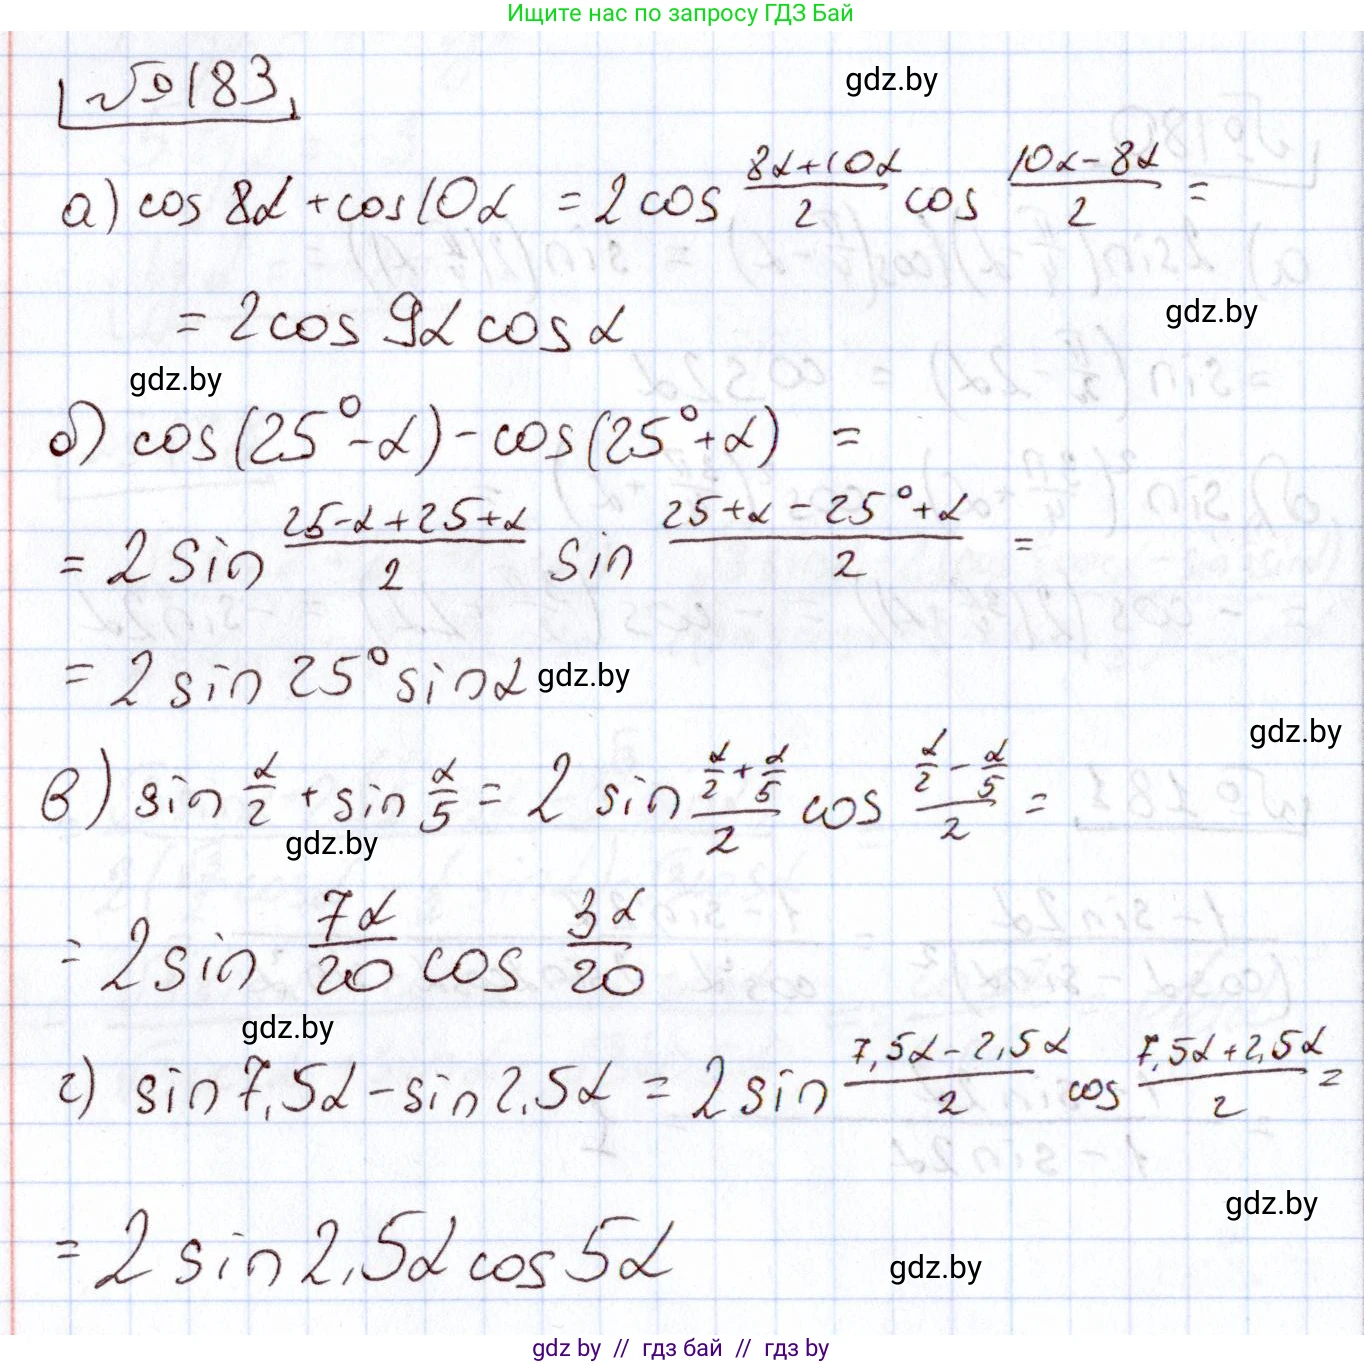 Ищите нас по запросу ГДЗ Бай
№183
gdz.by
а) cos 8α + cos 10α = 2 cos (8α+10α)/2 cos (10α-8α)/2 =
= 2cos 9α cos α
gdz.by
gdz.by
б) cos(25°-α) - cos(25°+α) =
= 2 sin (25-α+25+α)/2 sin (25+α-25°+α)/2 =
= 2 sin 25° sin α
gdz.by
gdz.by
в) sin α/2 + sin α/5 = 2 sin (α/2+α/5)/2 cos (α/2-α/5)/2 =
gdz.by
= 2 sin 7α/20 cos 3α/20
gdz.by
г) sin 7,5α - sin 2,5α = 2 sin (7,5α-2,5α)/2 cos (7,5α+2,5α)/2 =
gdz.by
= 2 sin 2,5α cos 5α
gdz.by
gdz by // гдз бай // гдз by